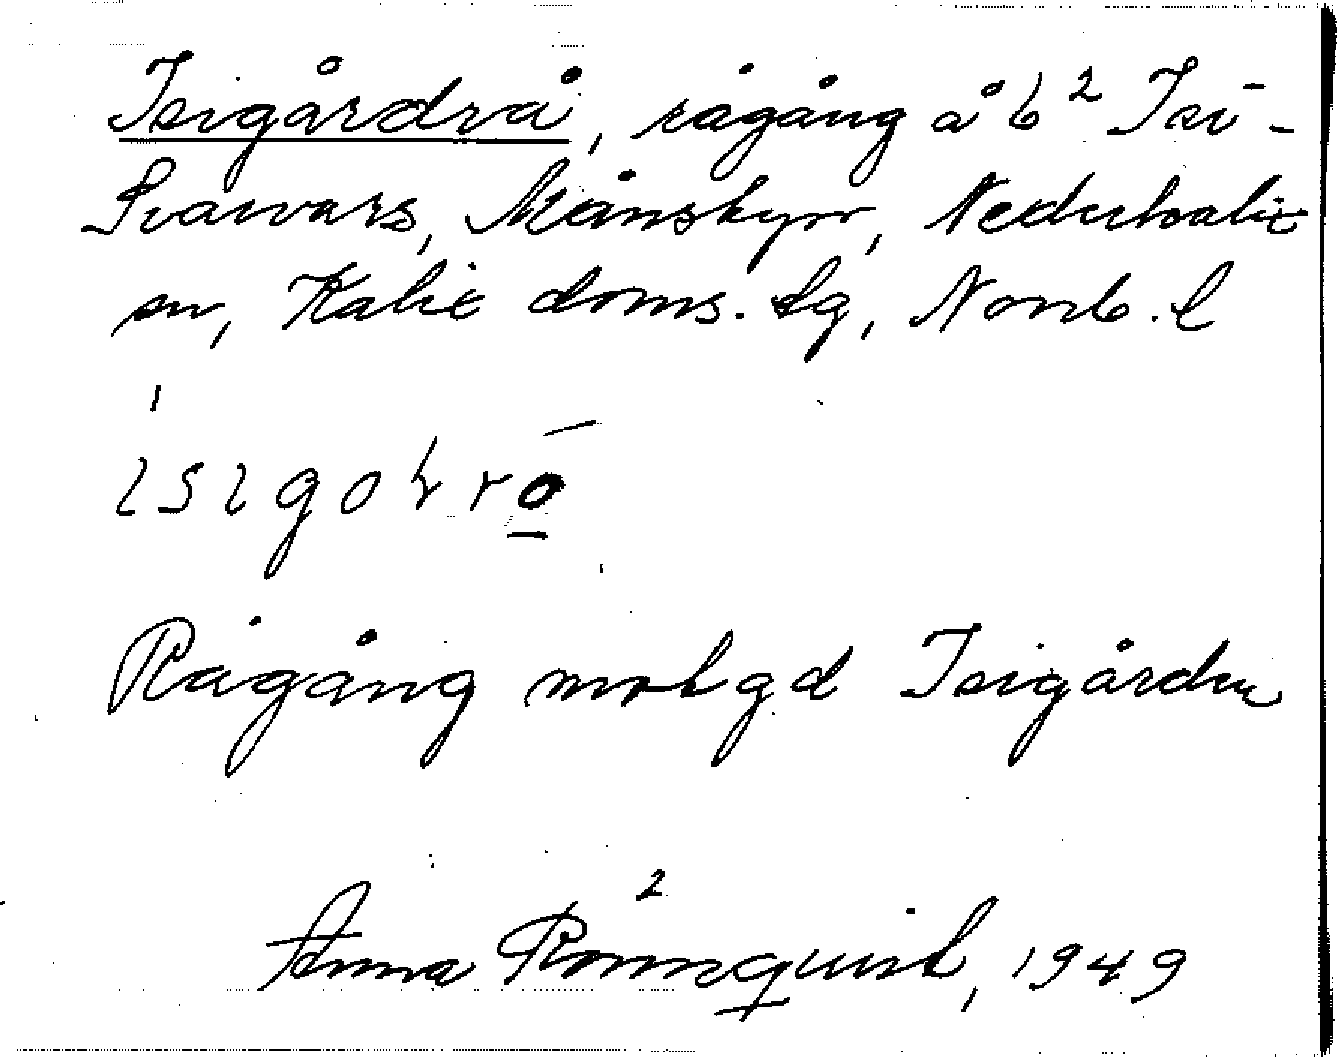 Isigårdrå, rågång å 6² Isi-
Svarvars, Månsbyn, Nederkalix
sn, Kalix doms. lg, Norrb. l
ısıgoɽrō
Rågång mot gd Isigården
Anna Rönnquist, 1949